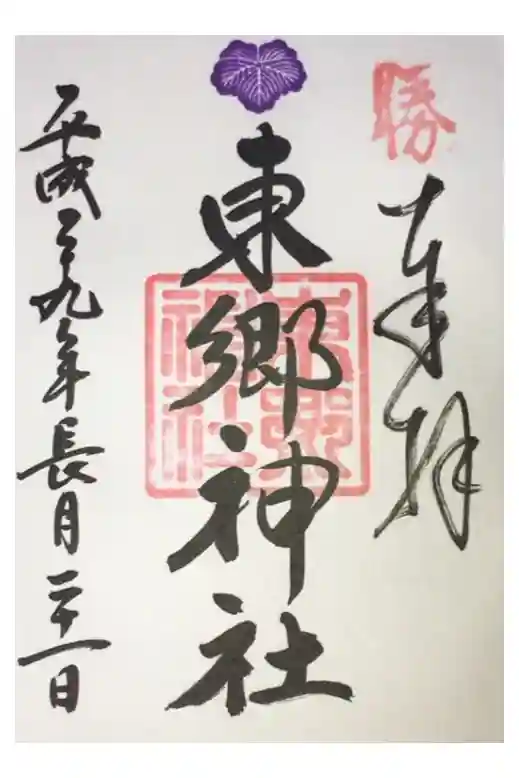 勝
奉拝
東郷神社
東郷神社
平成二九年長月二十一日